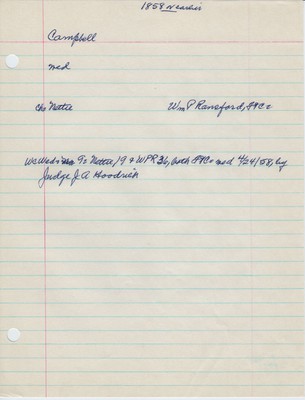 1858 Nearlis
Campbell
med
cho Nettie Wm P Ransford, FtCo
WcWed 9: Nettie, 19 & WPR 26, both FtCo med 4/24/58, by
Judge J. A Goodrich